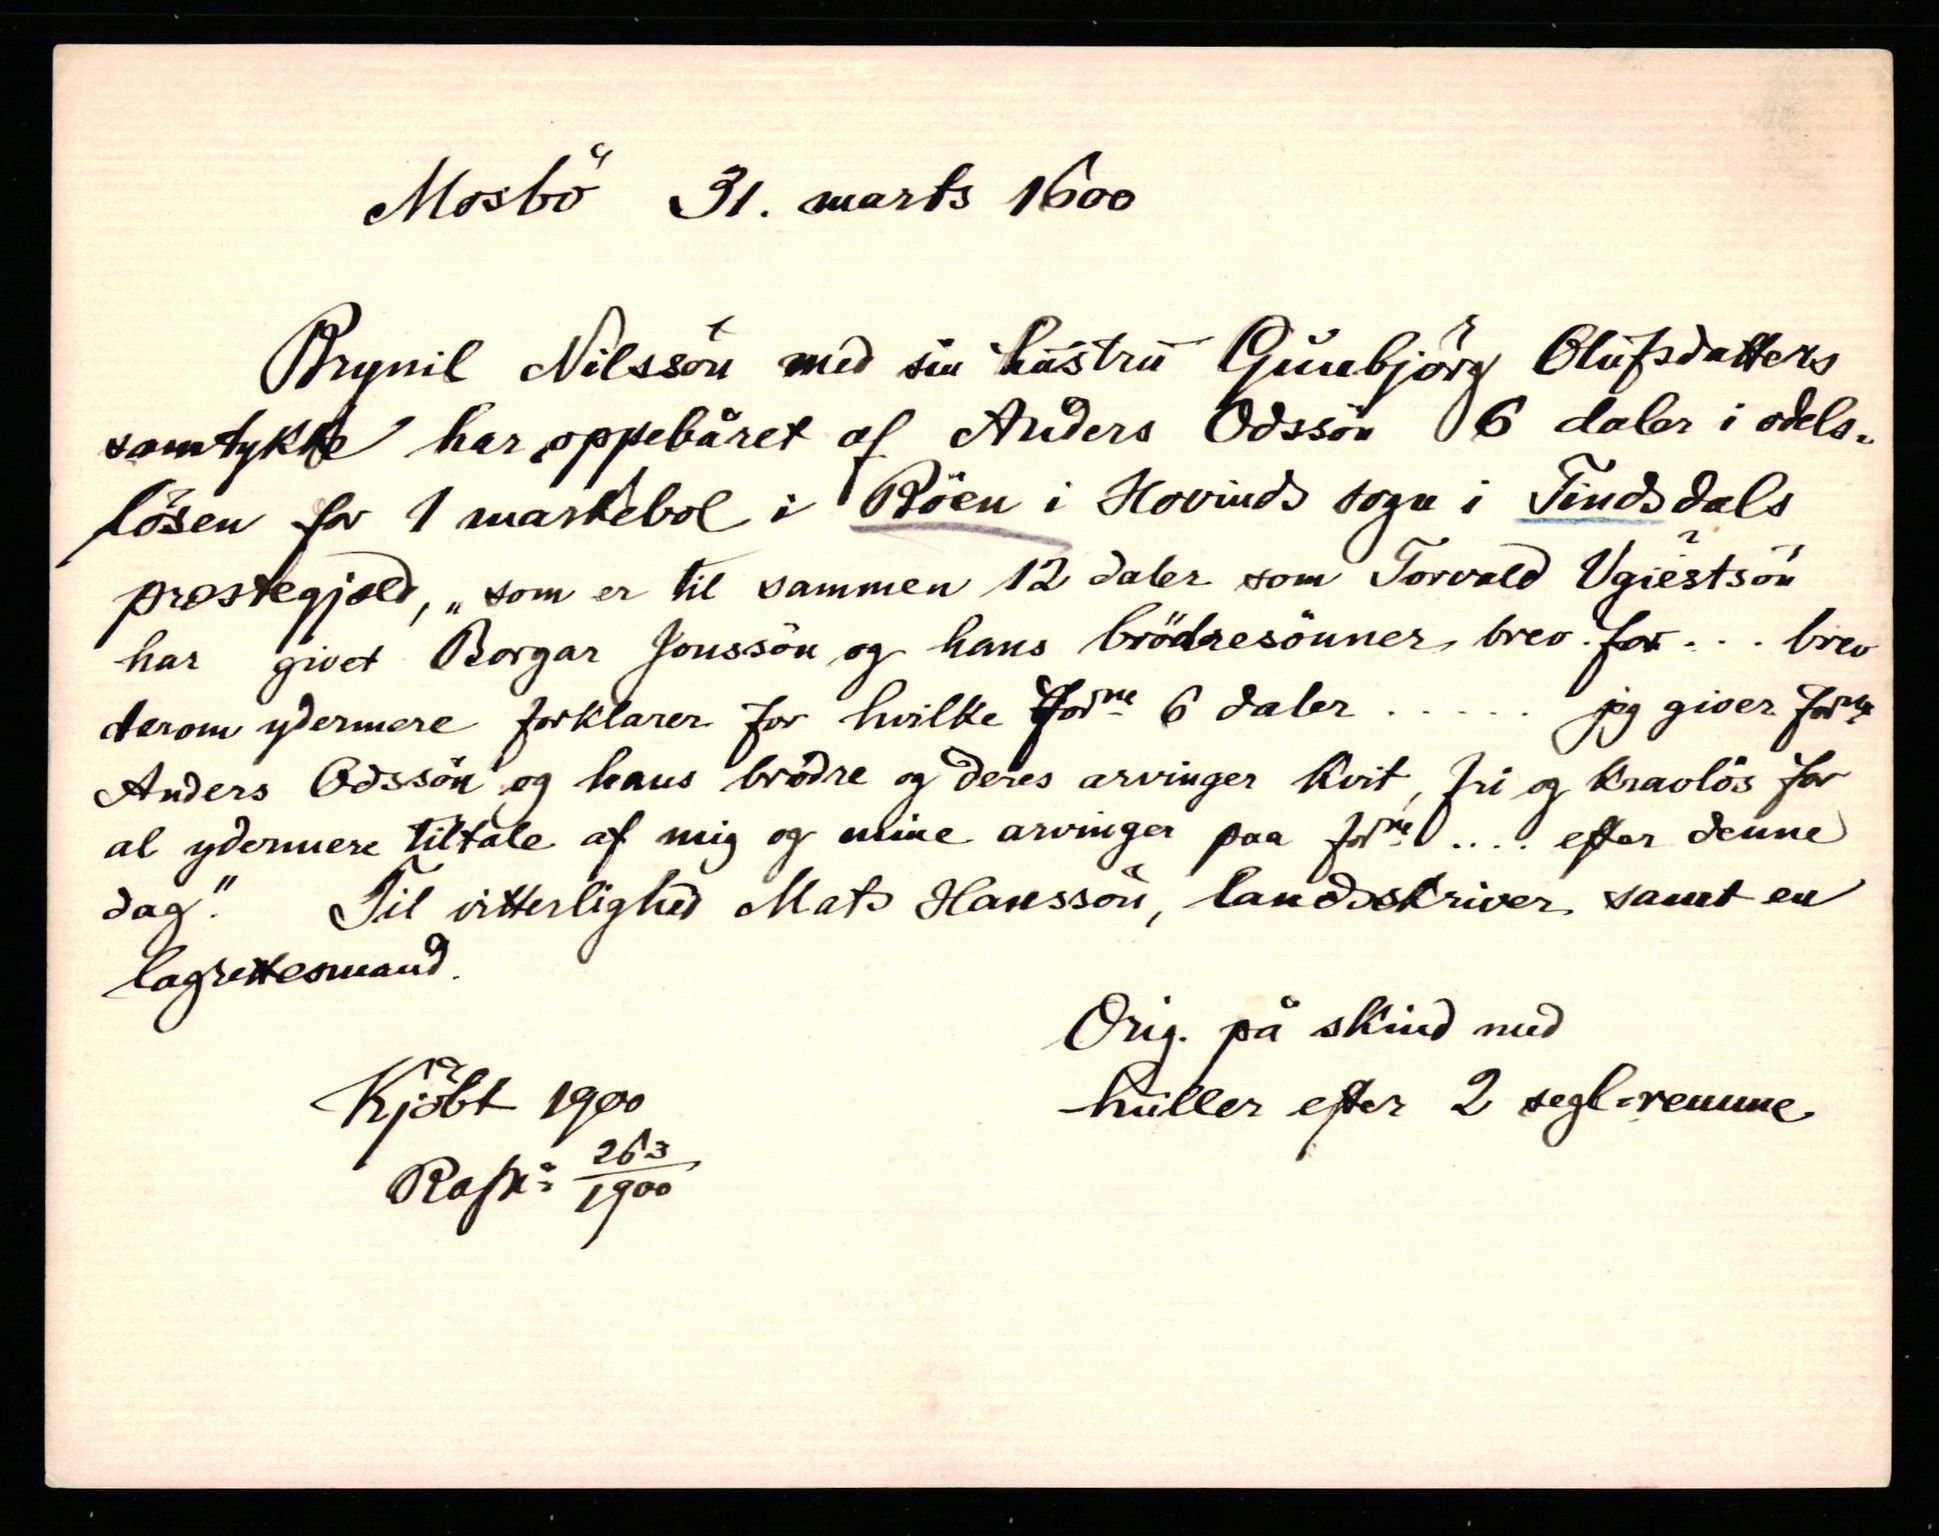 Mosbö 31. marts 1600
Brynil Nilssön med sin hustru Gunbjörg Olufsdatters
samtykke har oppebåret af Anders Odssön 6 daler i odels-
lösen for 1 markebol i Böen i Hovinds sogn i Tindsdals
præstegjæld, „som er til sammen 12 daler som Torvald Ugiestsön
har givet Borgar Jonssön og hans brödresönner brev for ... brev
derom ydermere forklarer for hvilke forne 6 daler ..... jeg giver forne
Anders Odssön og hans brødre og deres arvinger kvit, fri og kravlös for
al ydermere tiltale af mig og mine arvinger paa forne .... efter denne
dag." Til vitterlighed Mats Hanssön, landsskriver samt en
lagrettesmand.
Orig. på skind med
huller efter 2 segl-remme
Kjöbt 1900
263
1900